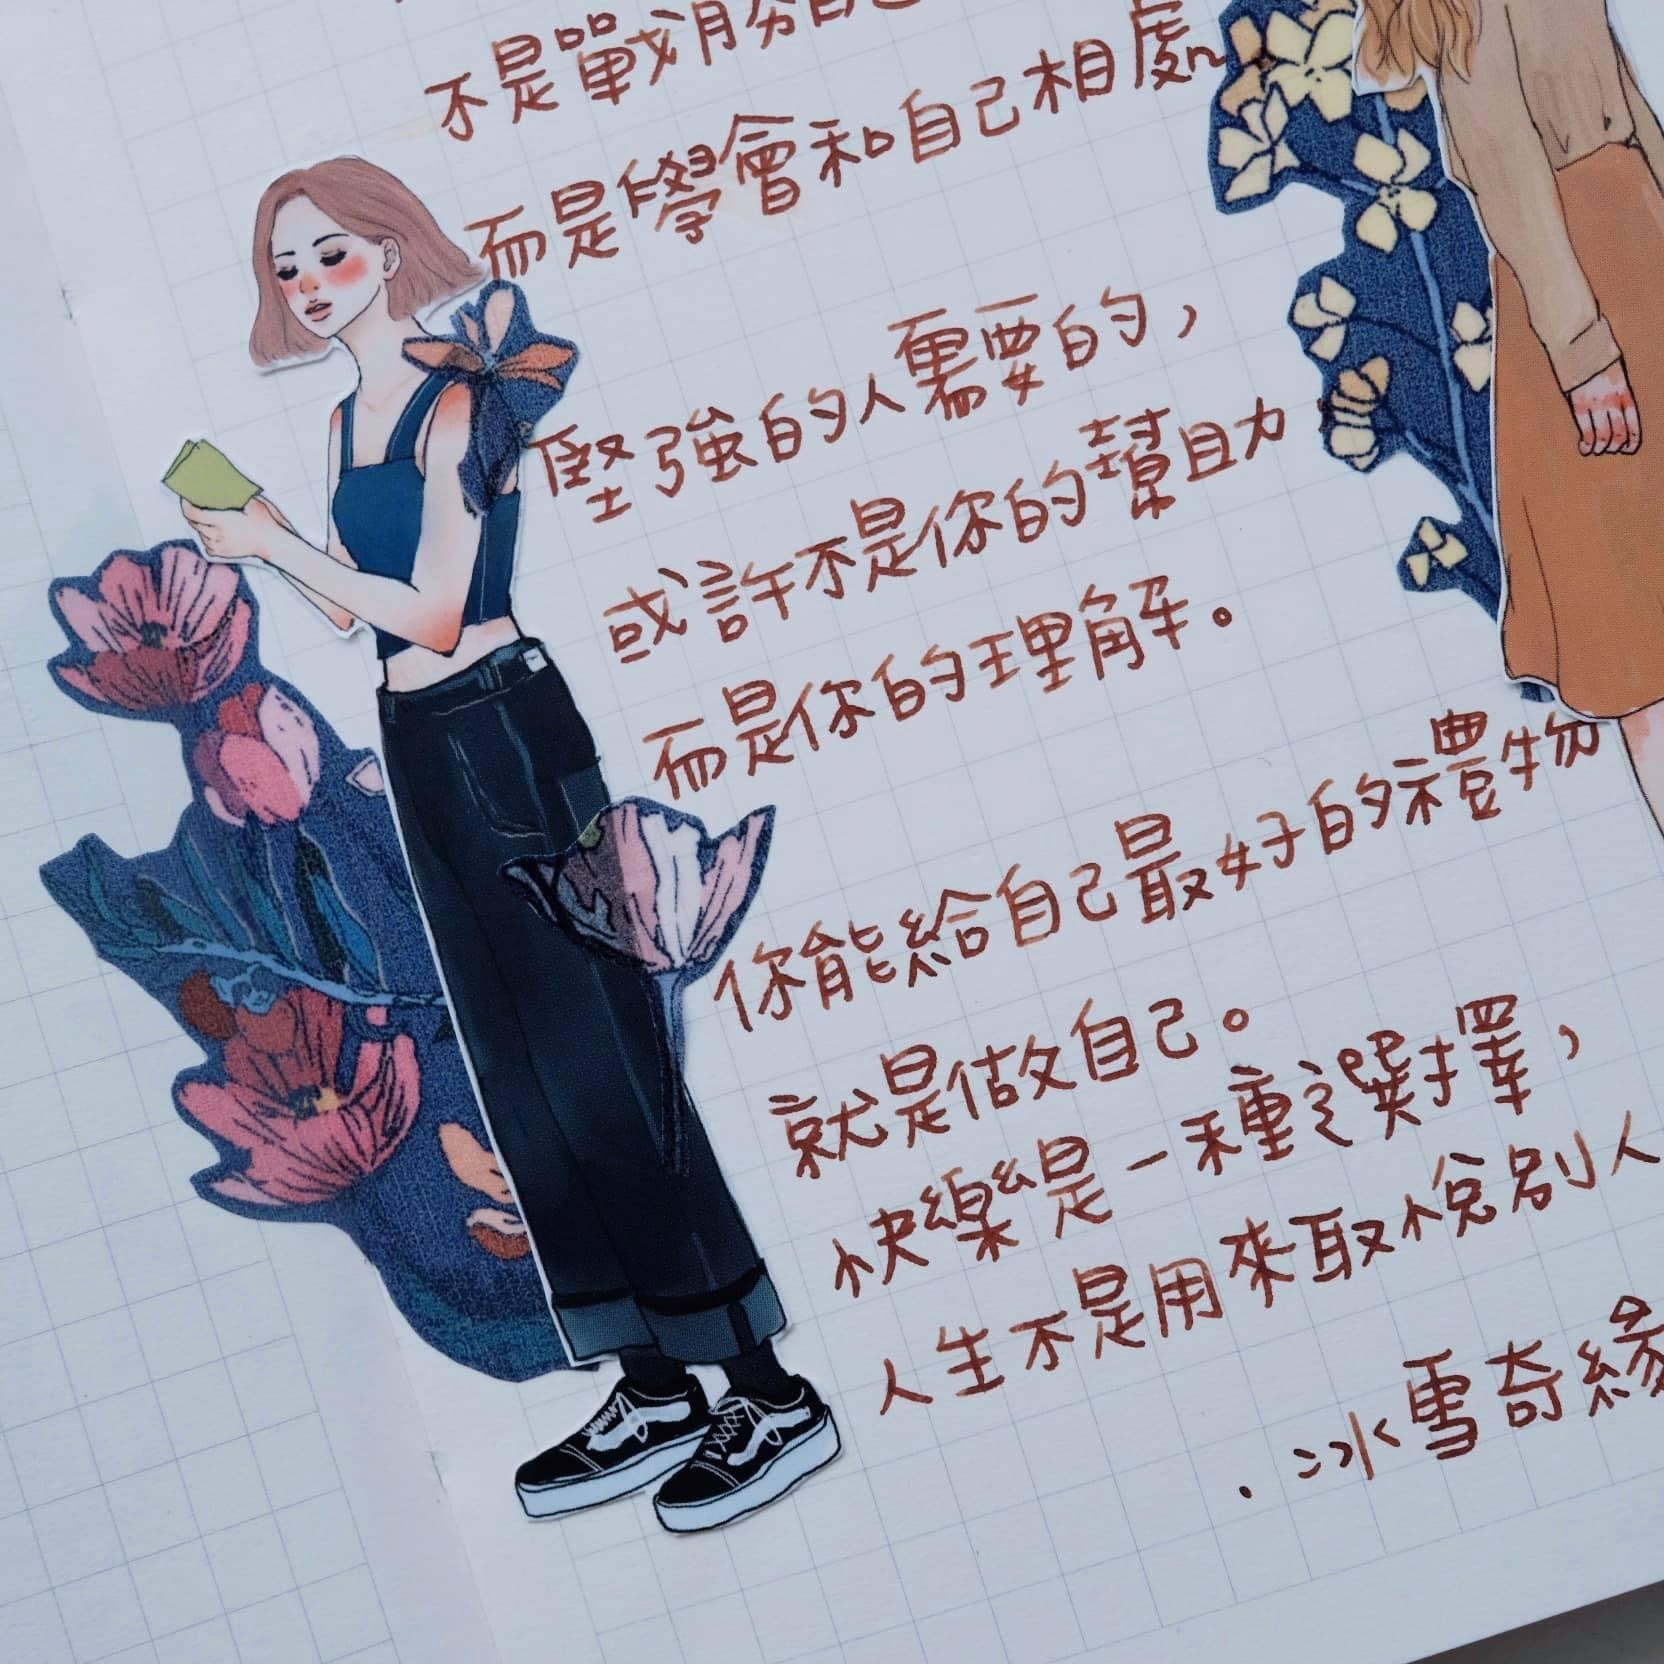 不是戰勝自己
而是學會和自己相處
堅強的人需要的，
或許不是你的幫助，
而是你的理解。
你能給自己最好的禮物
就是做自己。
快樂是一種選擇，
人生不是用來取悅別人
．冰雪奇緣